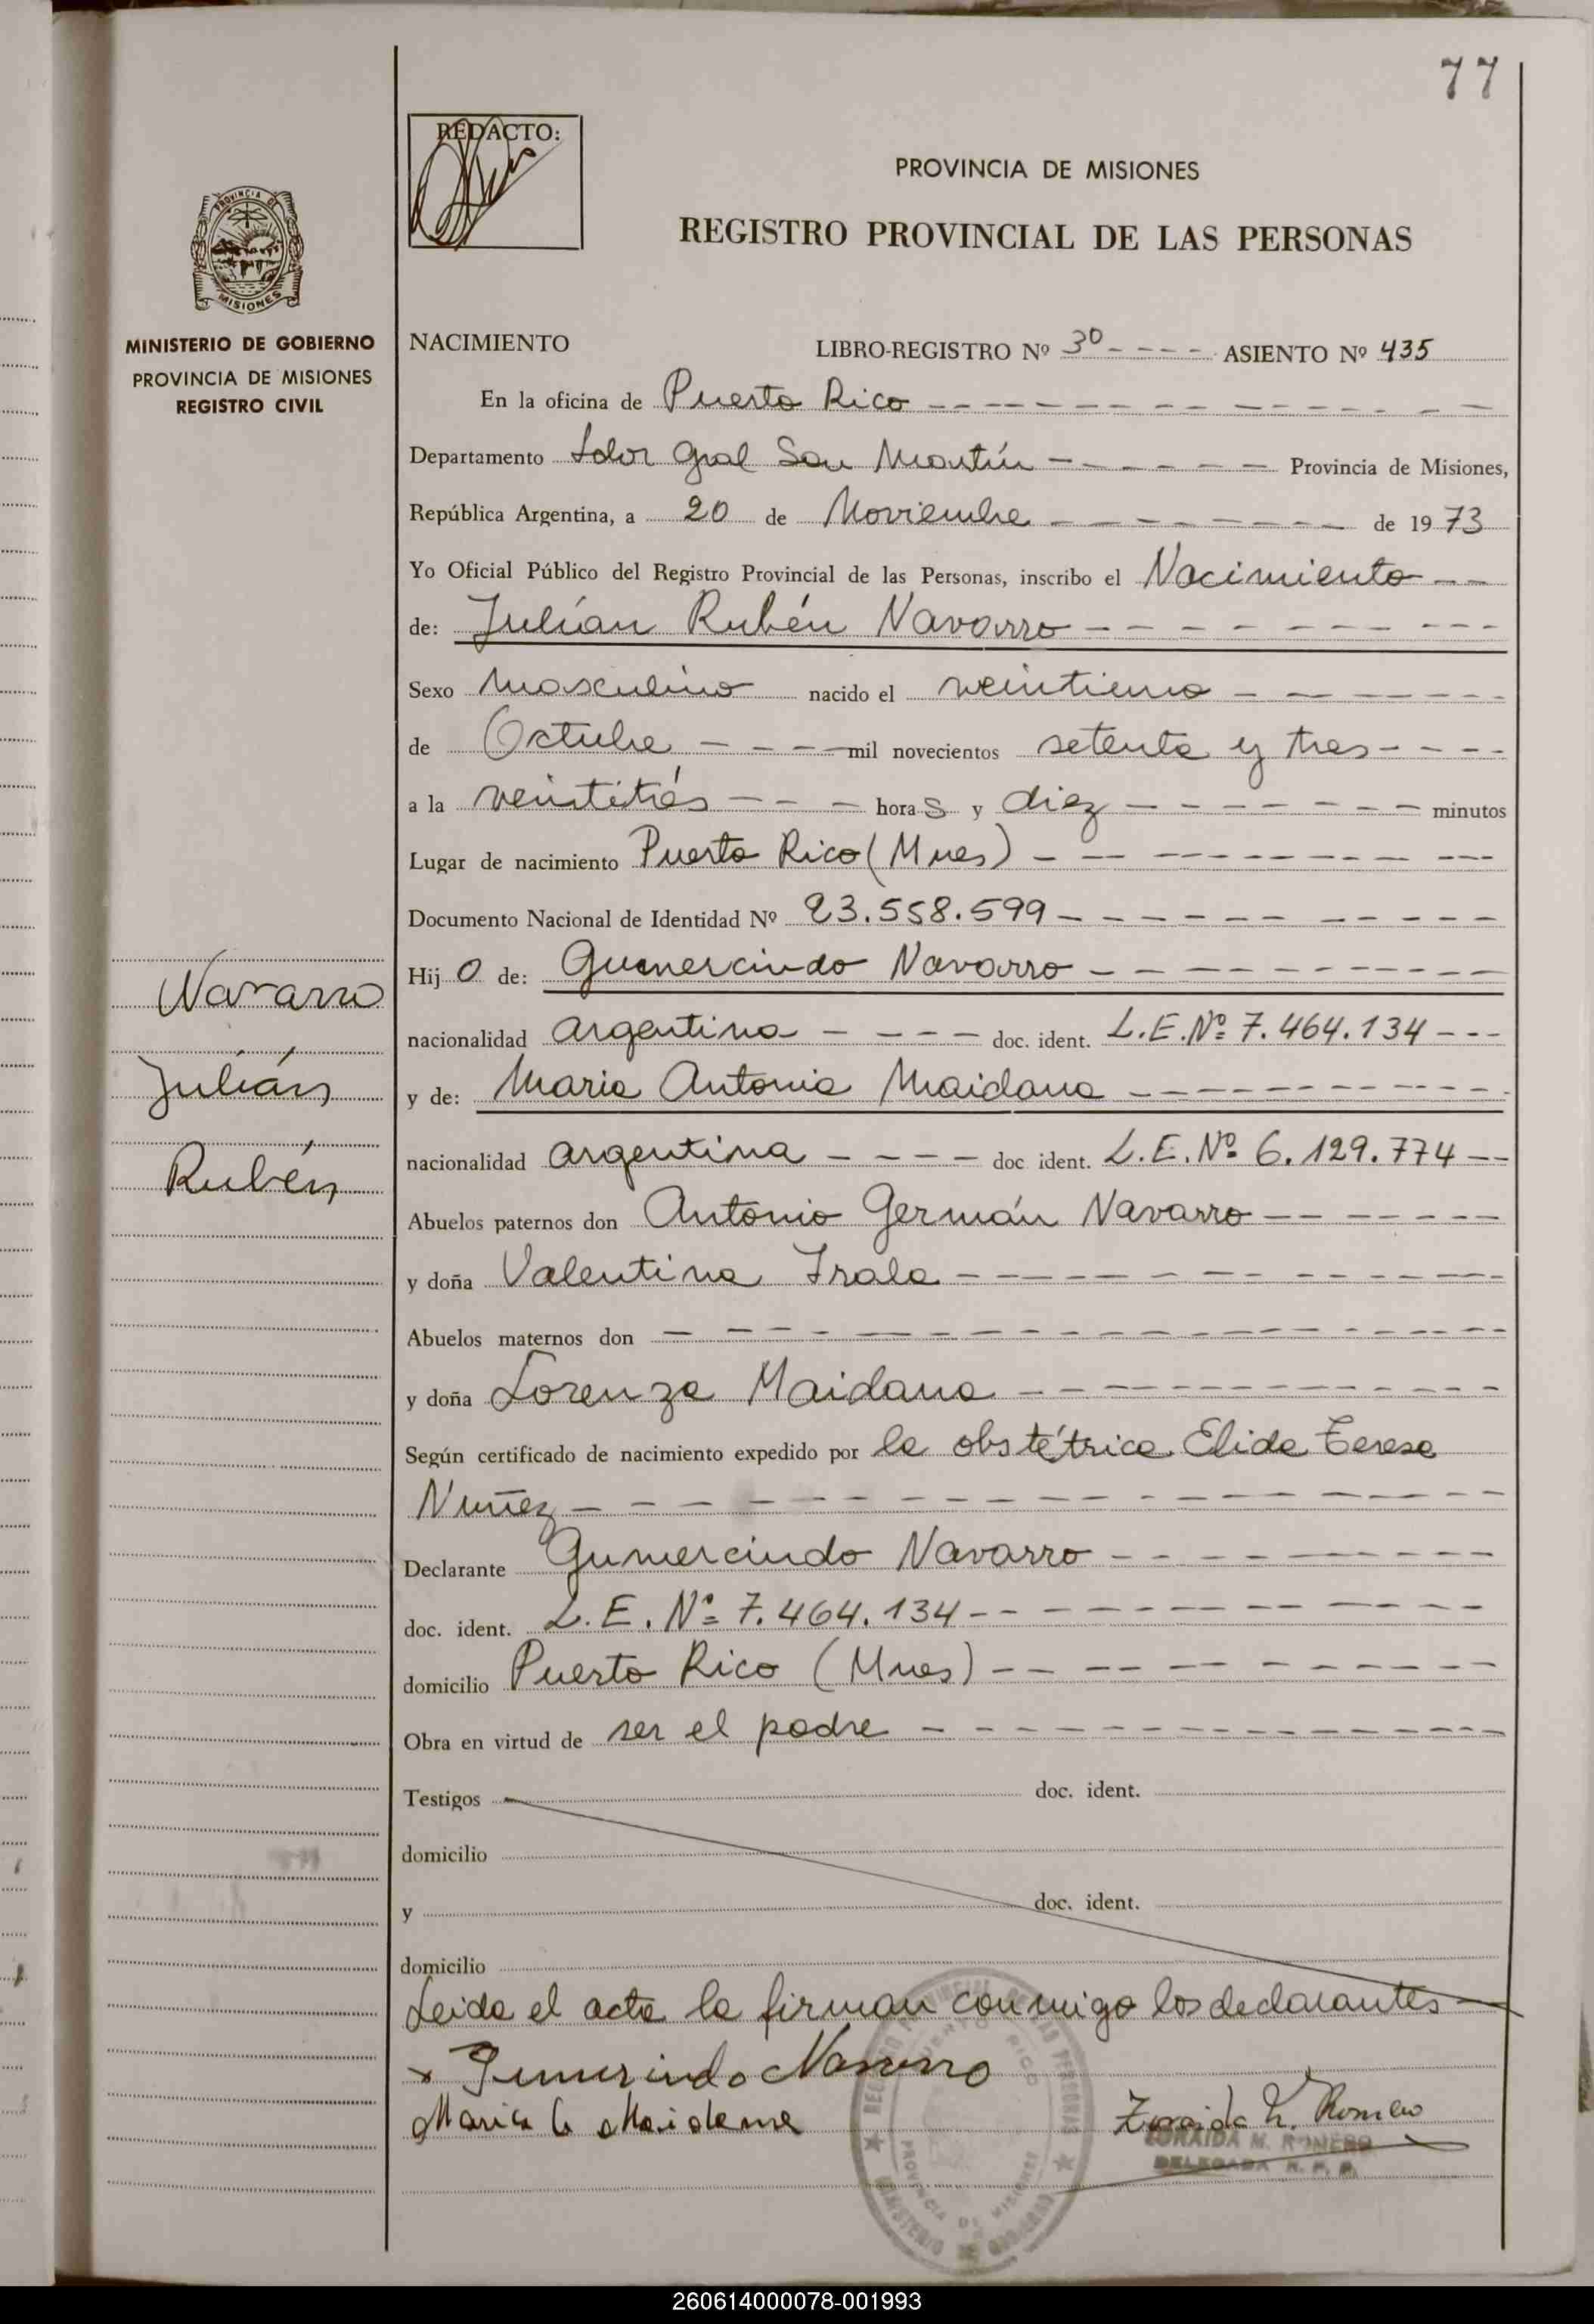 77
REDACTO:
PROVINCIA DE MISIONES
REGISTRO PROVINCIAL DE LAS PERSONAS
PROVINCIA DE
MISIONES
MINISTERIO DE GOBIERNO
PROVINCIA DE MISIONES
REGISTRO CIVIL
NACIMIENTO LIBRO-REGISTRO Nº 3º - - - - ASIENTO Nº 435
En la oficina de Puerto Rico
Departamento Ldor Gral San Martín Provincia de Misiones,
República Argentina, a 20 de Noviembre de 1973
Yo Oficial Público del Registro Provincial de las Personas, inscribo el Nacimiento
de: Julián Rubén Navarro
Sexo Masculino nacido el veintiuno
de Octubre mil novecientos setenta y tres
a la veintitrés horas y diez minutos
Lugar de nacimiento Puerto Rico (Mnes)
Documento Nacional de Identidad Nº 23.558.599
Hijo de: Gumercindo Navarro
nacionalidad argentina doc. ident. L.E.Nº 7.464.134
y de: Maria Antonia Maidana
nacionalidad argentina doc ident. L.E.Nº 6.129.774
Abuelos paternos don Antonio Germán Navarro
y doña Valentina Irala
Abuelos maternos don
y doña Lorenza Maidana
Según certificado de nacimiento expedido por la obstétrica Elida Teresa
Nuñez
Declarante Gumercindo Navarro
doc. ident. L.E.Nº 7.464.134
domicilio Puerto Rico (Mnes)
Obra en virtud de ser el padre
Testigos doc. ident.
domicilio
y doc. ident.
domicilio
Leida el acta la firman conmigo los declarantes
x Gumercindo Navarro
Maria A Maidana
Zoraida M. Romero
ZORAIDA M. ROMERO
DELEGADA R. P. P.
Navarro
Julián
Rubén
REGISTRO PROVINCIAL DE LAS PERSONAS
PUERTO RICO
PROVINCIA DE MISIONES
MINISTERIO DE GOBIERNO
260614000078-001993